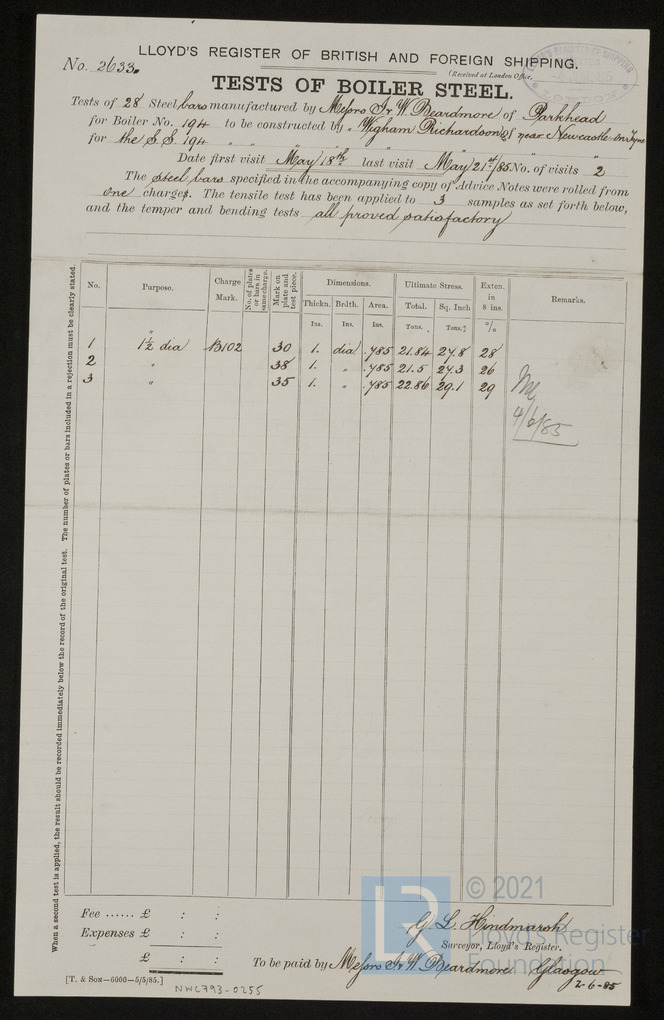 LLOYD'S REGISTER OF BRITISH AND FOREIGN SHIPPING.
No. 2633.
(Received at London Office,
TESTS OF BOILER STEEL.
Tests of 28 Steel bars manufactured by Messrs Jr W. Beardmore of Parkhead
for Boiler No. 194 to be constructed by " Wigham Richardson & of near Newcastle-on-Tyne
for the S.S. 194 " " " " "
Date first visit May 18th last visit May 21st/85 No. of visits 2
The steel bars specified in the accompanying copy of Advice Notes were rolled from
one charges. The tensile test has been applied to 3 samples as set forth below,
and the temper and bending tests all proved satisfactory
When a second test is applied, the result should be recorded immediately below the record of the original test. The number of plates or bars included in a rejection must be clearly stated.
No. Purpose. Charge Mark. No. of plates or bars in same charge. Mark on plate and test piece. Dimensions. Ultimate Stress. Exten. in 8 ins. Remarks.
Thickn. Brdth. Area. Total. Sq. Inch
Ins. Ins. Ins. Tons. Tons. %
"
1 1½ dia B102 30 1. dia .785 21.84 27.8 28
2 " 38 1. " .785 21.5 27.3 26
3 " 35 1. " .785 22.86 29.1 29
4/6/85
© 2021
LR
Lloyd's Register
Foundation
Fee ...... £ : :
Expenses £ : :
£ : :
G. L. Hindmarsh
Surveyor, Lloyd's Register.
To be paid by Messrs Jr W. Beardmore Glasgow
2-6-85
[T. & Son—6000—5/5/85.]
NWC793-0255